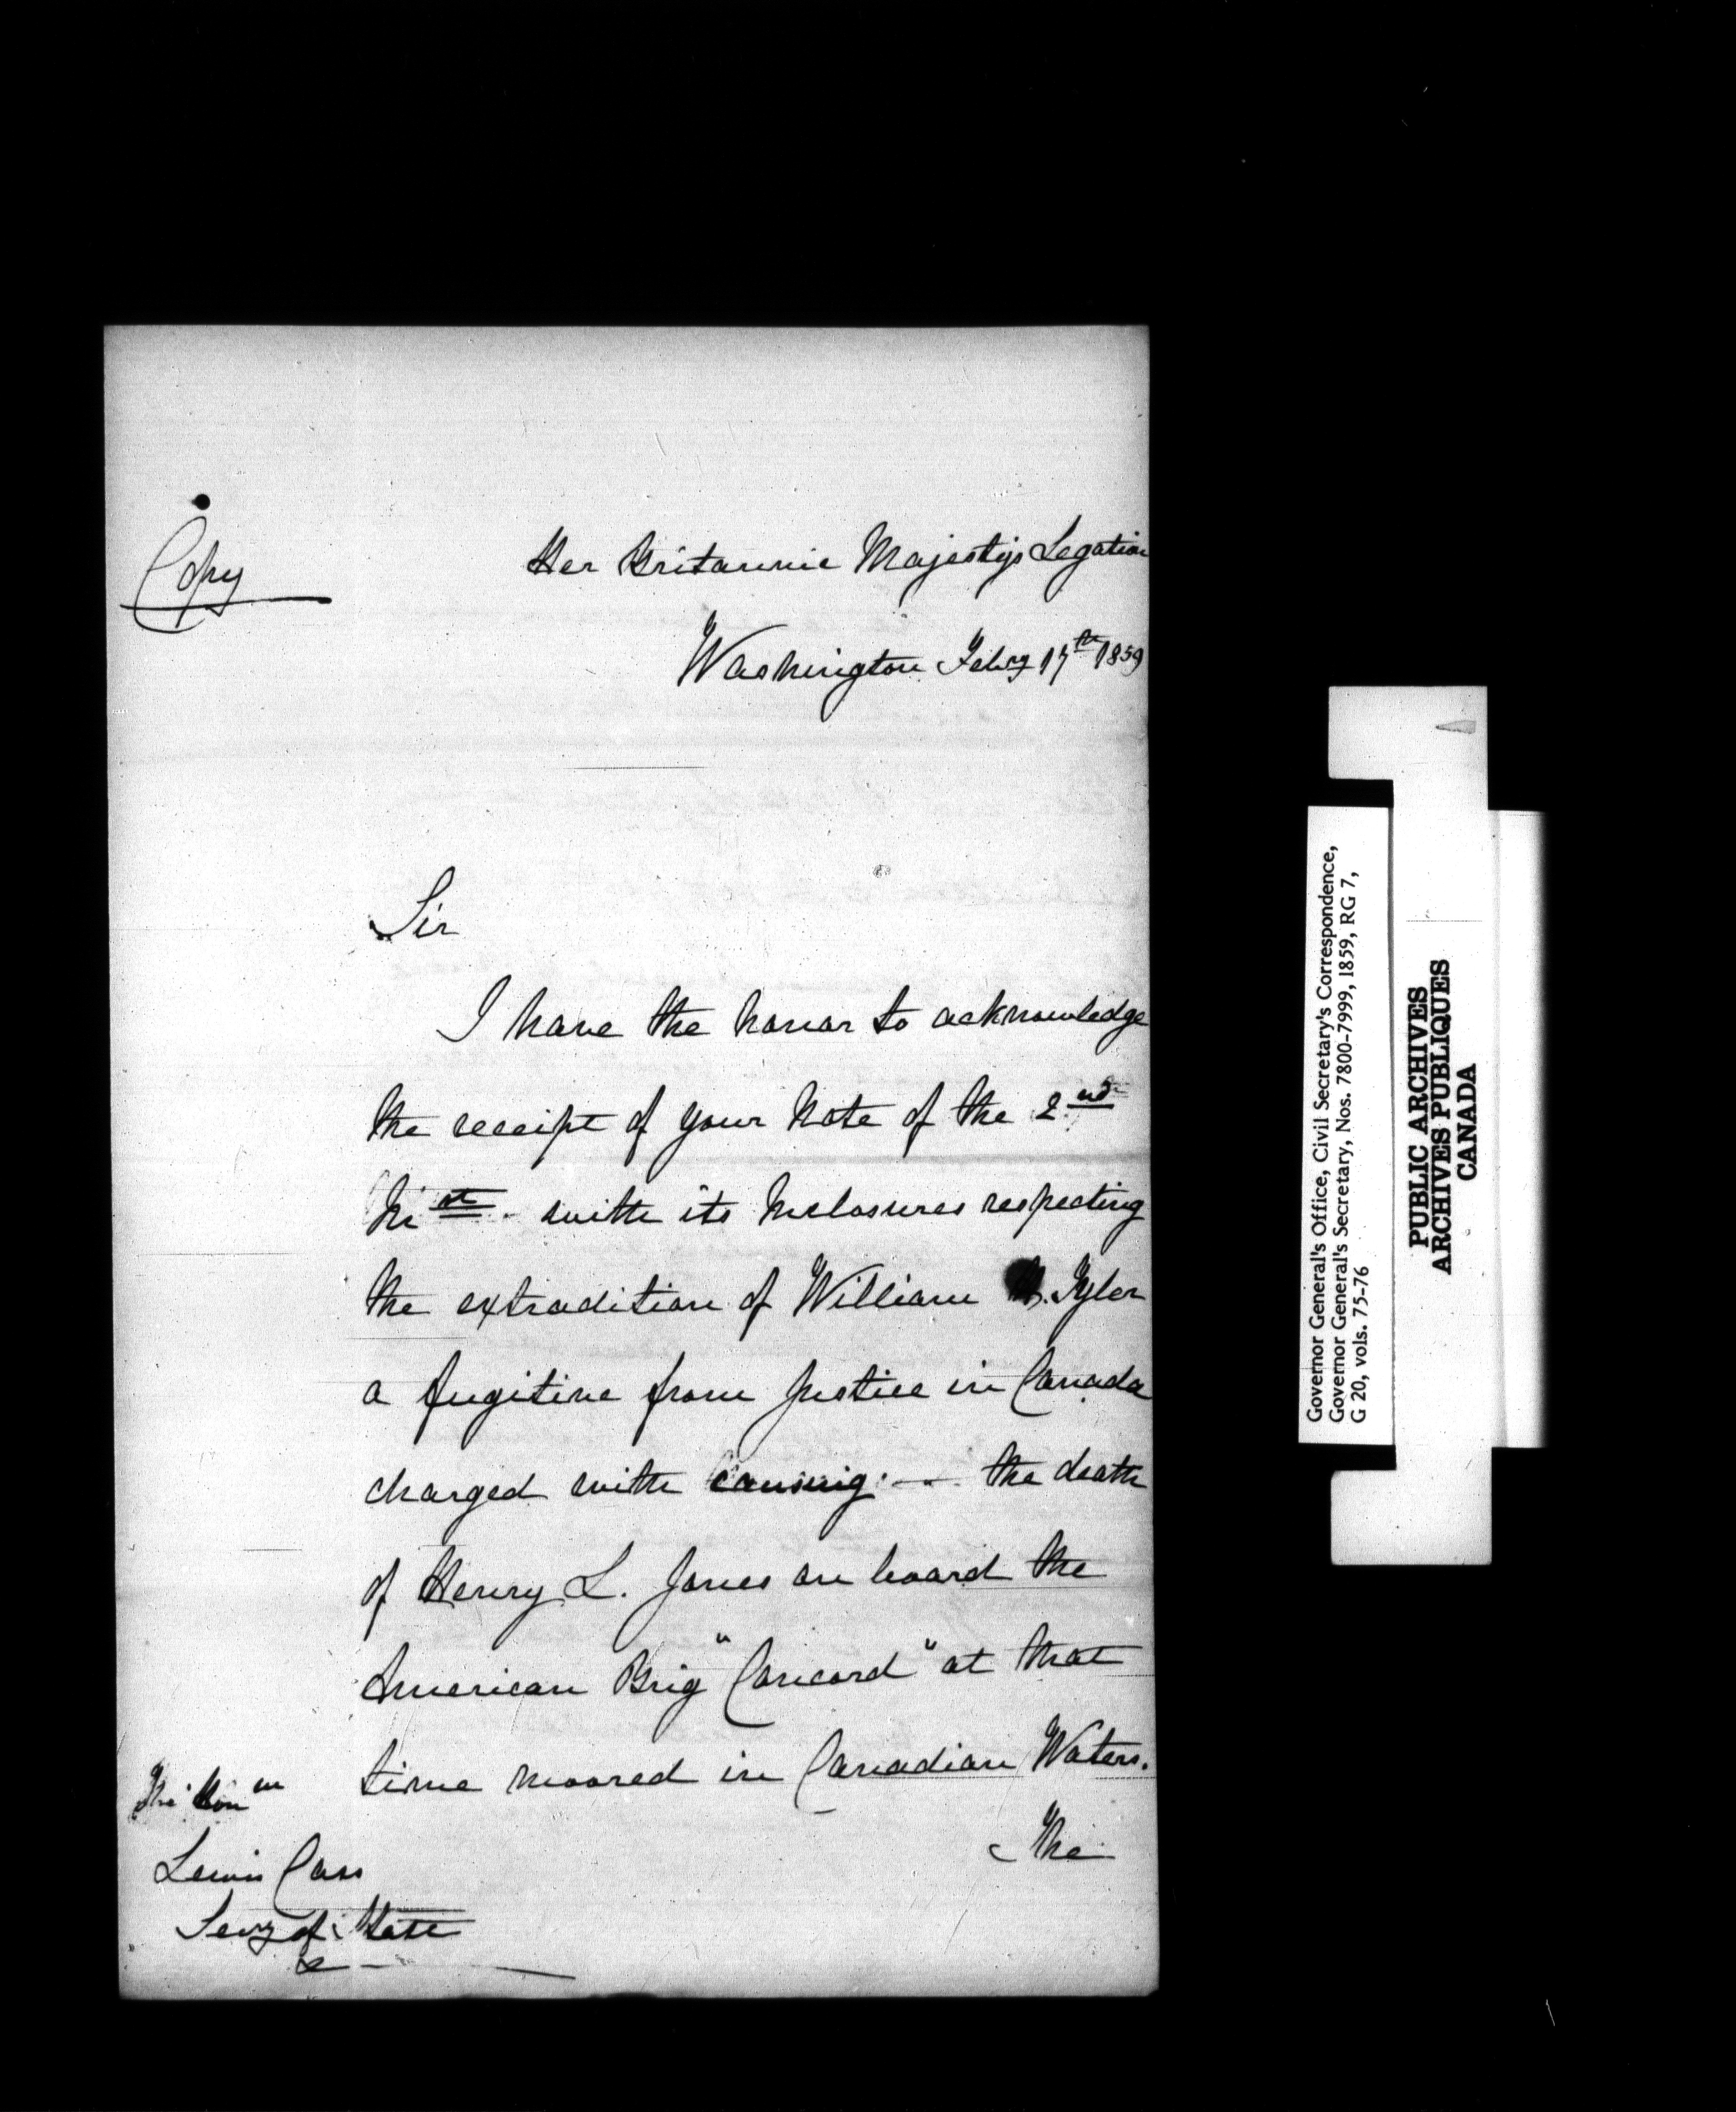 Copy
Her Britannic Majesty's Legation
Washington Feby 17th 1859
Sir
I have the honor to acknowledge
the receipt of your Note of the 2nd
Inst. with its Inclosures respecting
the extradition of William M. Tyler
a fugitive from Justice in Canada
charged with causing - the death
of Henry L. Jones on board the
American Brig "Concord" at that
time moored in Canadian Waters.
The
The Honble
Lewis Cass
Secy of State
Governor General's Office, Civil Secretary's Correspondence,
Governor General's Secretary, Nos. 7800-7999, 1859, RG 7,
G 20, vols. 75-76
PUBLIC ARCHIVES
ARCHIVES PUBLIQUES
CANADA